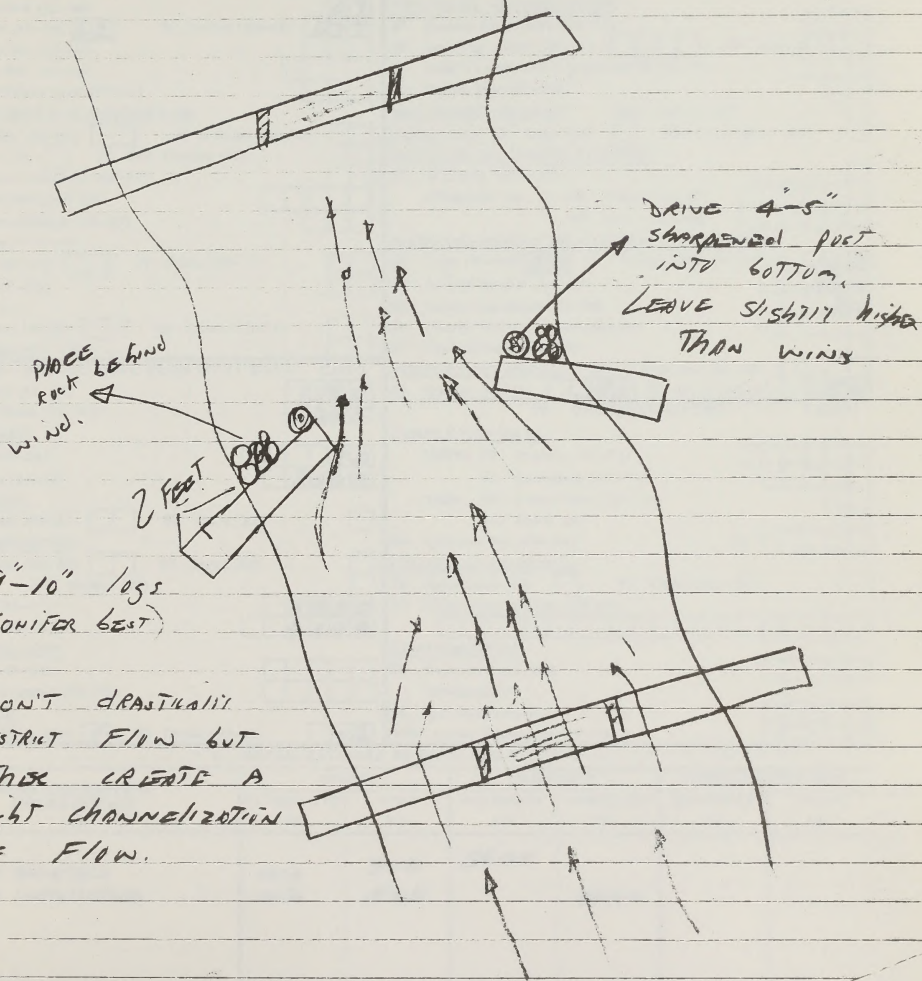 DRIVE 4"-5"
SHARPENED POST
INTO BOTTOM,
LEAVE SLIGHTLY HIGHER
THAN WING
PLACE
ROCK BEHIND
WING.
2 FEET
"-10" logs
ONIFER BEST)
ON'T DRASTICALLY
STRICT FLOW BUT
THER CREATE A
GHT CHANNELIZATION
FLOW.